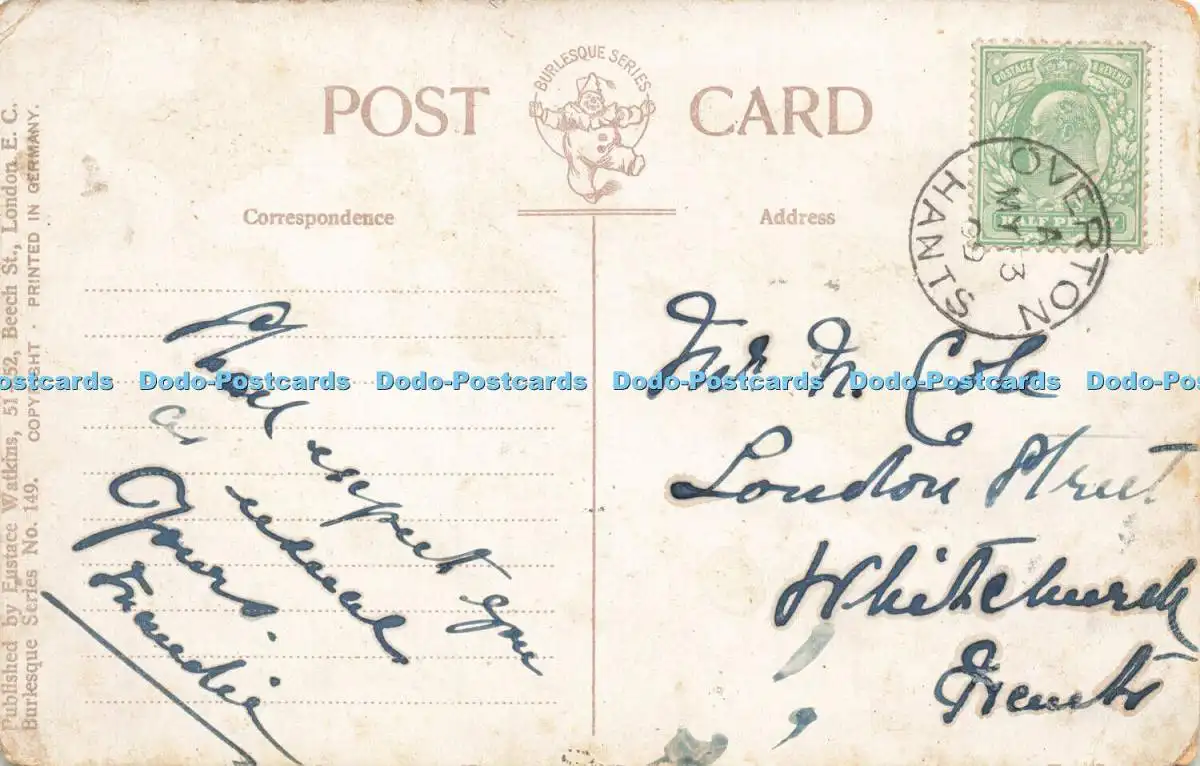 BURLESQUE SERIES
POST CARD
Correspondence
Address
POSTAGE & REVENUE
HALF PENNY
OVERTON
A
MY 13
09
HANTS
Shall expect you
as usual
Yours
Mr M. Cole
London Street
Whitchurch
Hants
Dodo-Postcards Dodo-Postcards Dodo-Postcards Dodo-Postcards Dodo-Postcards Dodo-Postcards
Published by Eustace Watkins, 51 & 52, Beech St., London E. C.
Burlesque Series No. 149. COPYRIGHT · PRINTED IN GERMANY.